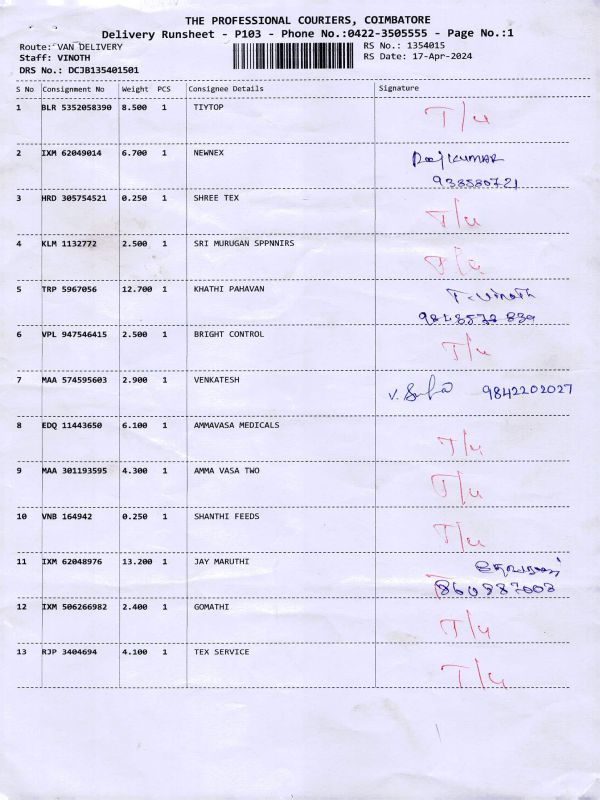 THE PROFESSIONAL COURIERS, COIMBATORE
Delivery Runsheet - P103 - Phone No.:0422-3505555 - Page No.:1
Route: VAN DELIVERY RS No.: 1354015
Staff: VINOTH RS Date: 17-Apr-2024
DRS No.: DCJB135401501
S No Consignment No Weight PCS Consignee Details Signature
1 BLR 5352058390 8.500 1 TIYTOP T/u
2 IXM 62049014 6.700 1 NEWNEX RajKUMAR
938580721
3 HRD 305754521 0.250 1 SHREE TEX T/u
4 KLM 1132772 2.500 1 SRI MURUGAN SPPNNIRS T/u
5 TRP 5967056 12.700 1 KHATHI PAHAVAN T.Vinoth
6 VPL 947546415 2.500 1 BRIGHT CONTROL T/u
7 MAA 574595603 2.900 1 VENKATESH V. 9842202027
8 EDQ 11443650 6.100 1 AMMAVASA MEDICALS T/u
9 MAA 301193595 4.300 1 AMMA VASA TWO T/u
10 VNB 164942 0.250 1 SHANTHI FEEDS T/u
11 IXM 62048976 13.200 1 JAY MARUTHI
12 IXM 506266982 2.400 1 GOMATHI T/u
13 RJP 3404694 4.100 1 TEX SERVICE T/u